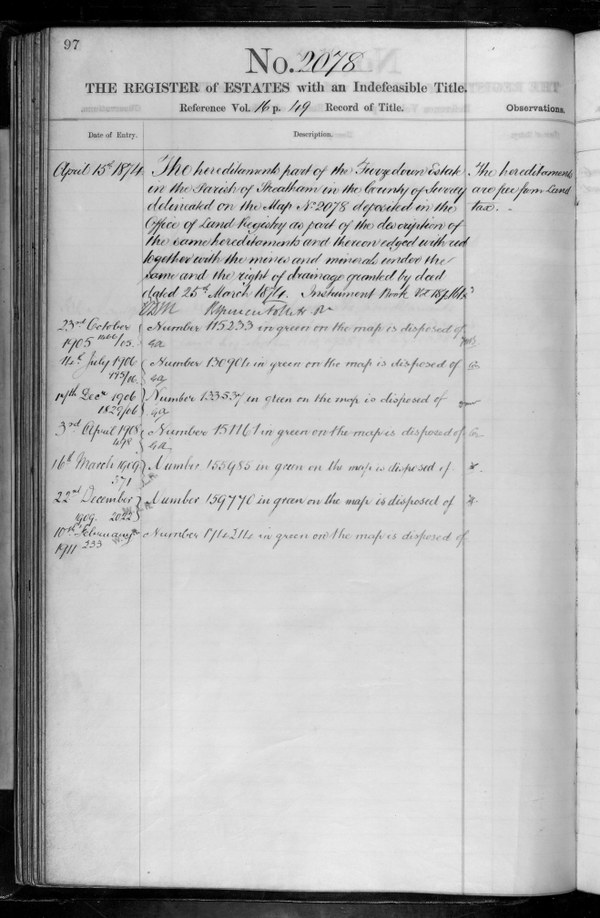 97
No. 2078
THE REGISTER of ESTATES with an Indefeasible Title.
Reference Vol. 16 p. 49 Record of Title.
Observations.
Date of Entry.
Description.
April 15th 1874
The hereditaments part of the Furzedown Estate
in the Parish of Streatham in the County of Surrey
delineated on the Map No 2078 deposited in the
Office of Land Registry as part of the description of
the same hereditaments and thereon edged with red
together with the mines and minerals under the
same and the right of drainage granted by deed
dated 25th March 1874. Instrument Book
The hereditaments
are free from Land
tax.
23rd October
1905
Number 115233 in green on the map is disposed of
14th July 1906
Number 130904 in green on the map is disposed of
17th Decr 1906
1829/06
Number 133537 in green on the map is disposed of
3rd April 1908
498
Number 151161 in green on the map is disposed of
16th March 1909
371
Number 155985 in green on the map is disposed of
22nd December
1909. 2022
Number 159770 in green on the map is disposed of
10th February
1911 233
Number 174214 in green on the map is disposed of